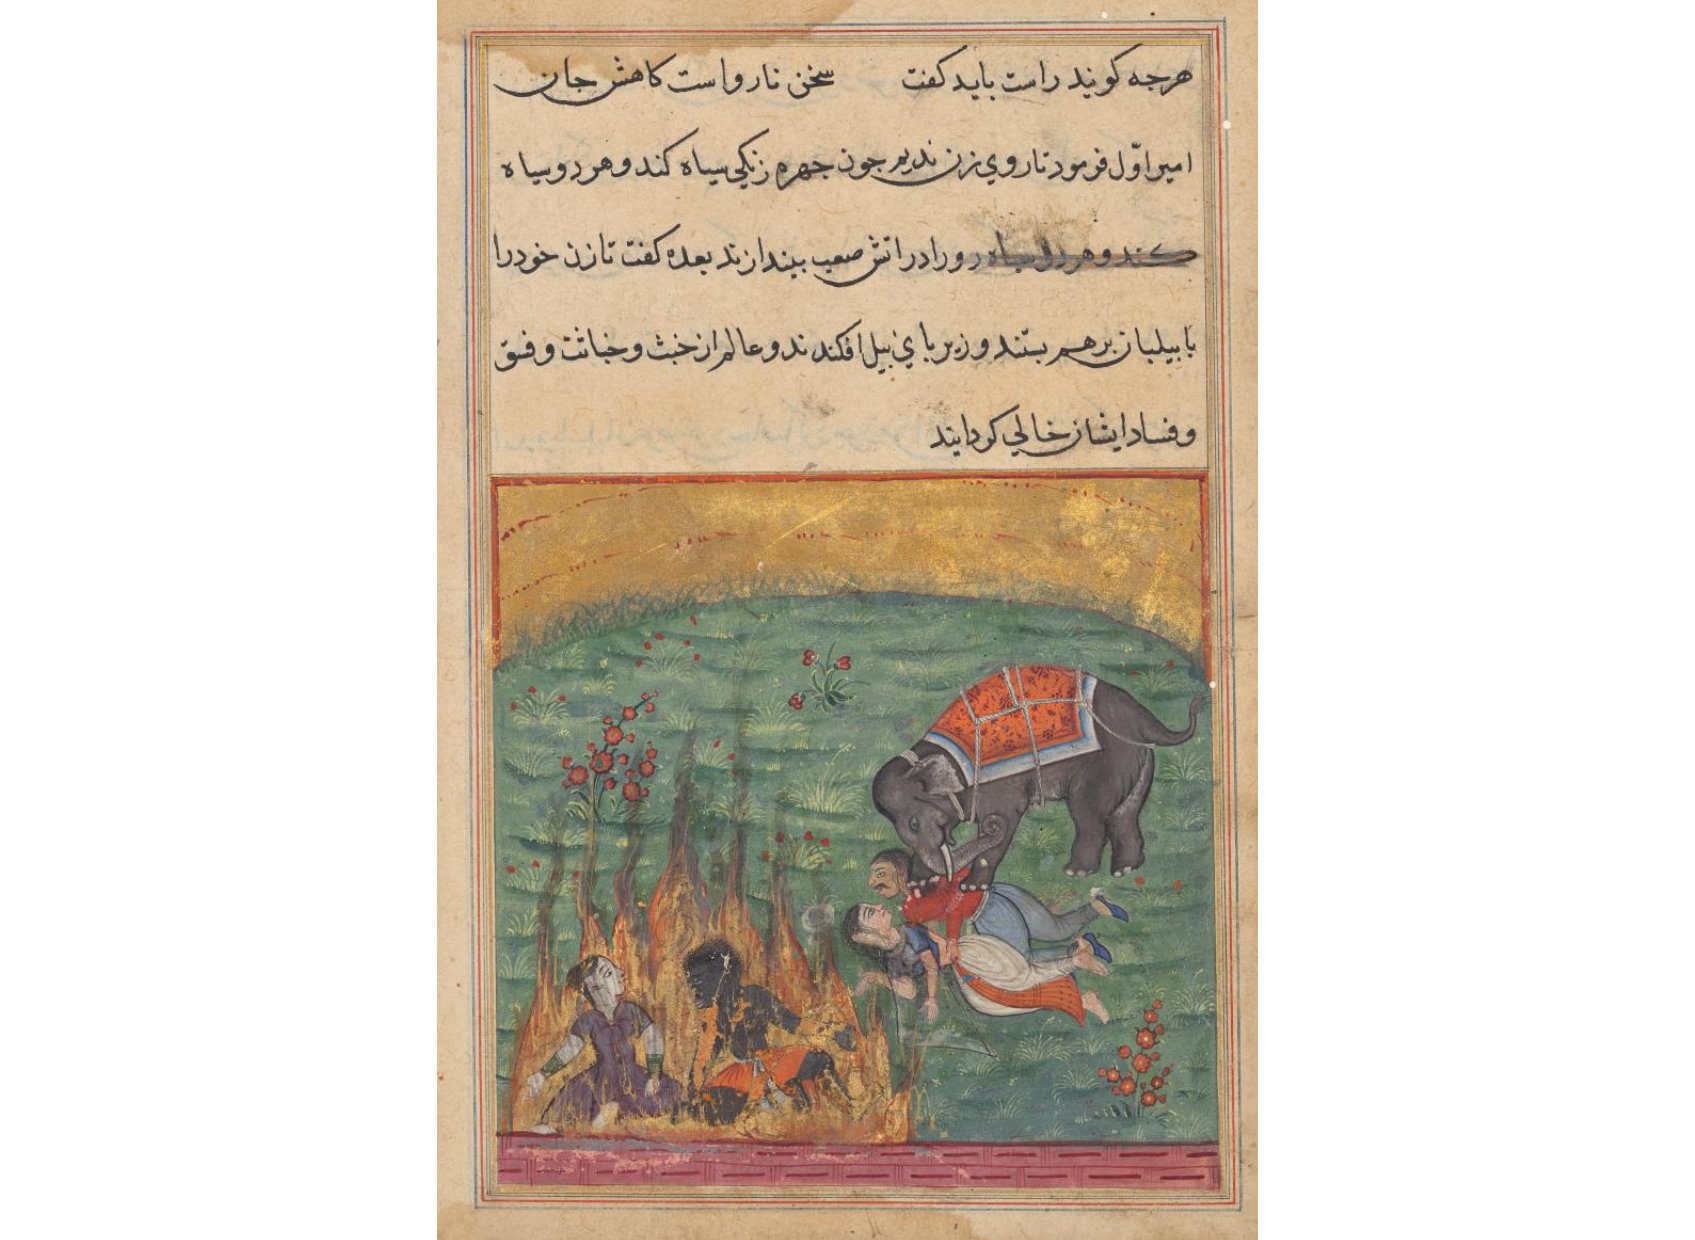 هرجه کویند راست باید کفت سخن ناروا است کاهش جان
امیر اوّل فرمود تا روي زن ندیم جون جهره زنکی سیاه کند و هر دو سیاه
کند و هر دو سیاه رو را در اتش صعب بیندازند بعده کفت تا زن خود را
با بیلبان برهم بستند و زیر باي بیل افکندند و عالم از خبث و خباثت و فسق
و فساد ایشان خالي کردایند